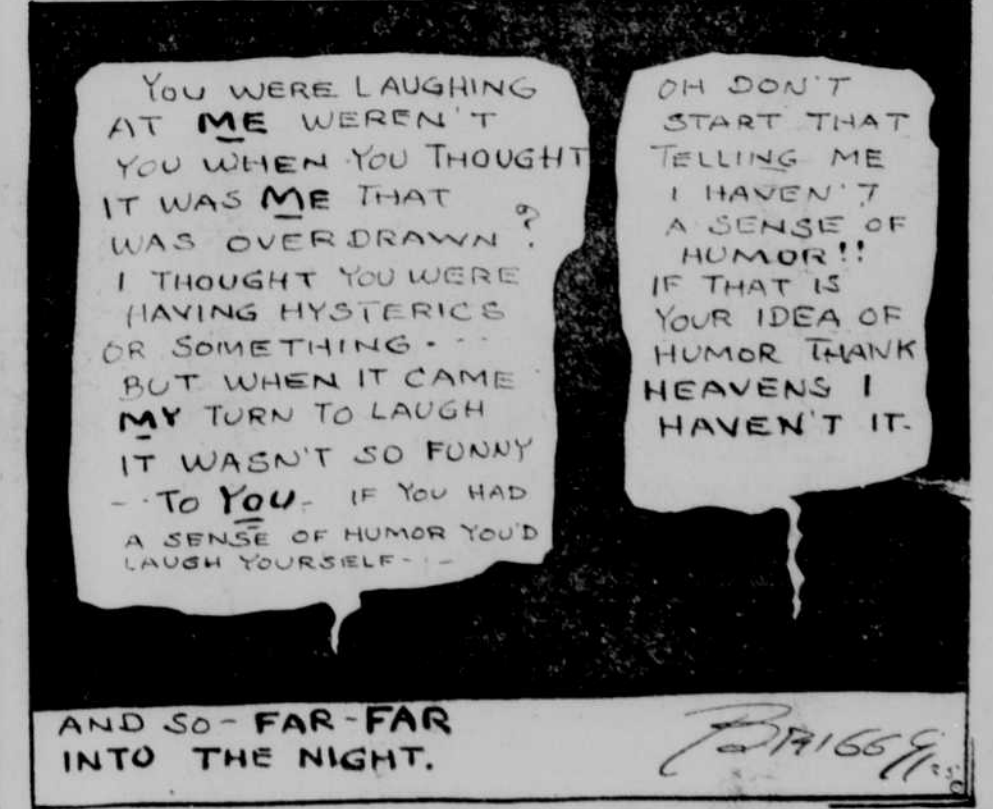 YOU WERE LAUGHING
AT ME WEREN'T
YOU WHEN YOU THOUGHT
IT WAS ME THAT
WAS OVERDRAWN?
I THOUGHT YOU WERE
HAVING HYSTERICS
OR SOMETHING - - -
BUT WHEN IT CAME
MY TURN TO LAUGH
IT WASN'T SO FUNNY
- - TO YOU - IF YOU HAD
A SENSE OF HUMOR YOU'D
LAUGH YOURSELF - - -
OH DON'T
START THAT
TELLING ME
I HAVEN'T
A SENSE OF
HUMOR!!
IF THAT IS
YOUR IDEA OF
HUMOR THANK
HEAVENS I
HAVEN'T IT.
AND SO - FAR - FAR
INTO THE NIGHT.
BRIGGS